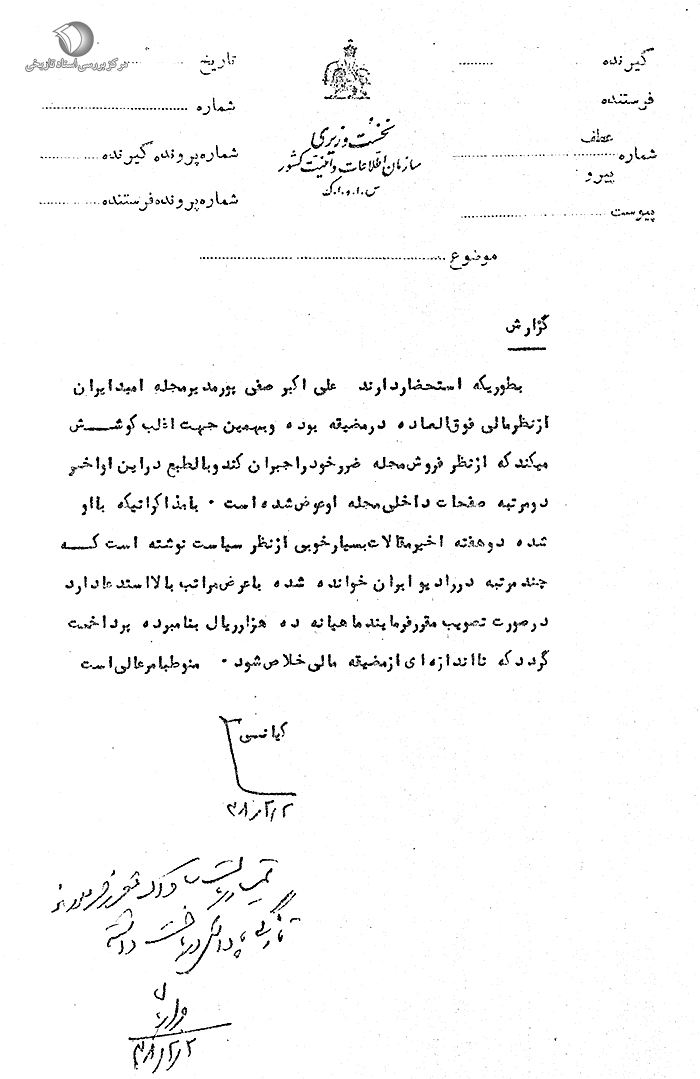 مرکز بررسی اسناد تاریخی
گیرنده
فرستنده
عطف
شماره
پیرو
پیوست
نخست وزیری
سازمان اطلاعات و امنیت کشور
س.ا.و.ا.ک
تاریخ
شماره
شماره پرونده گیرنده
شماره پرونده فرستنده
موضوع
گزارش
بطوریکه استحضار دارند علی اکبر صفی پور مدیر مجله امید ایران
از نظر مالی فوق العاده در مضیقه بوده و بهمین جهت اغلب کوشش
میکند که از نظر فروش مجله ضرر خود را جبران کند و بالطبع در این اواخر
دو مرتبه صفحات داخلی مجله او عوض شده است . با مذاکراتیکه با او
شده دو هفته اخیر مقالات بسیار خوبی از نظر سیاست نوشته است که
چند مرتبه در رادیو ایران خوانده شده با عرض مراتب بالا استدعا دارد
در صورت تصویب مقرر فرمایند ماهیانه ده هزار ریال بنامبرده پرداخت
گردد که تا اندازه ای از مضیقه مالی خلاص شود . منوط بامر عالی است
کیانی
۳۸/۲/۲
تیمسار ریاست ساواک مقرر فرمودند
پاداش دریافت داشته
۳۸/۲/۲